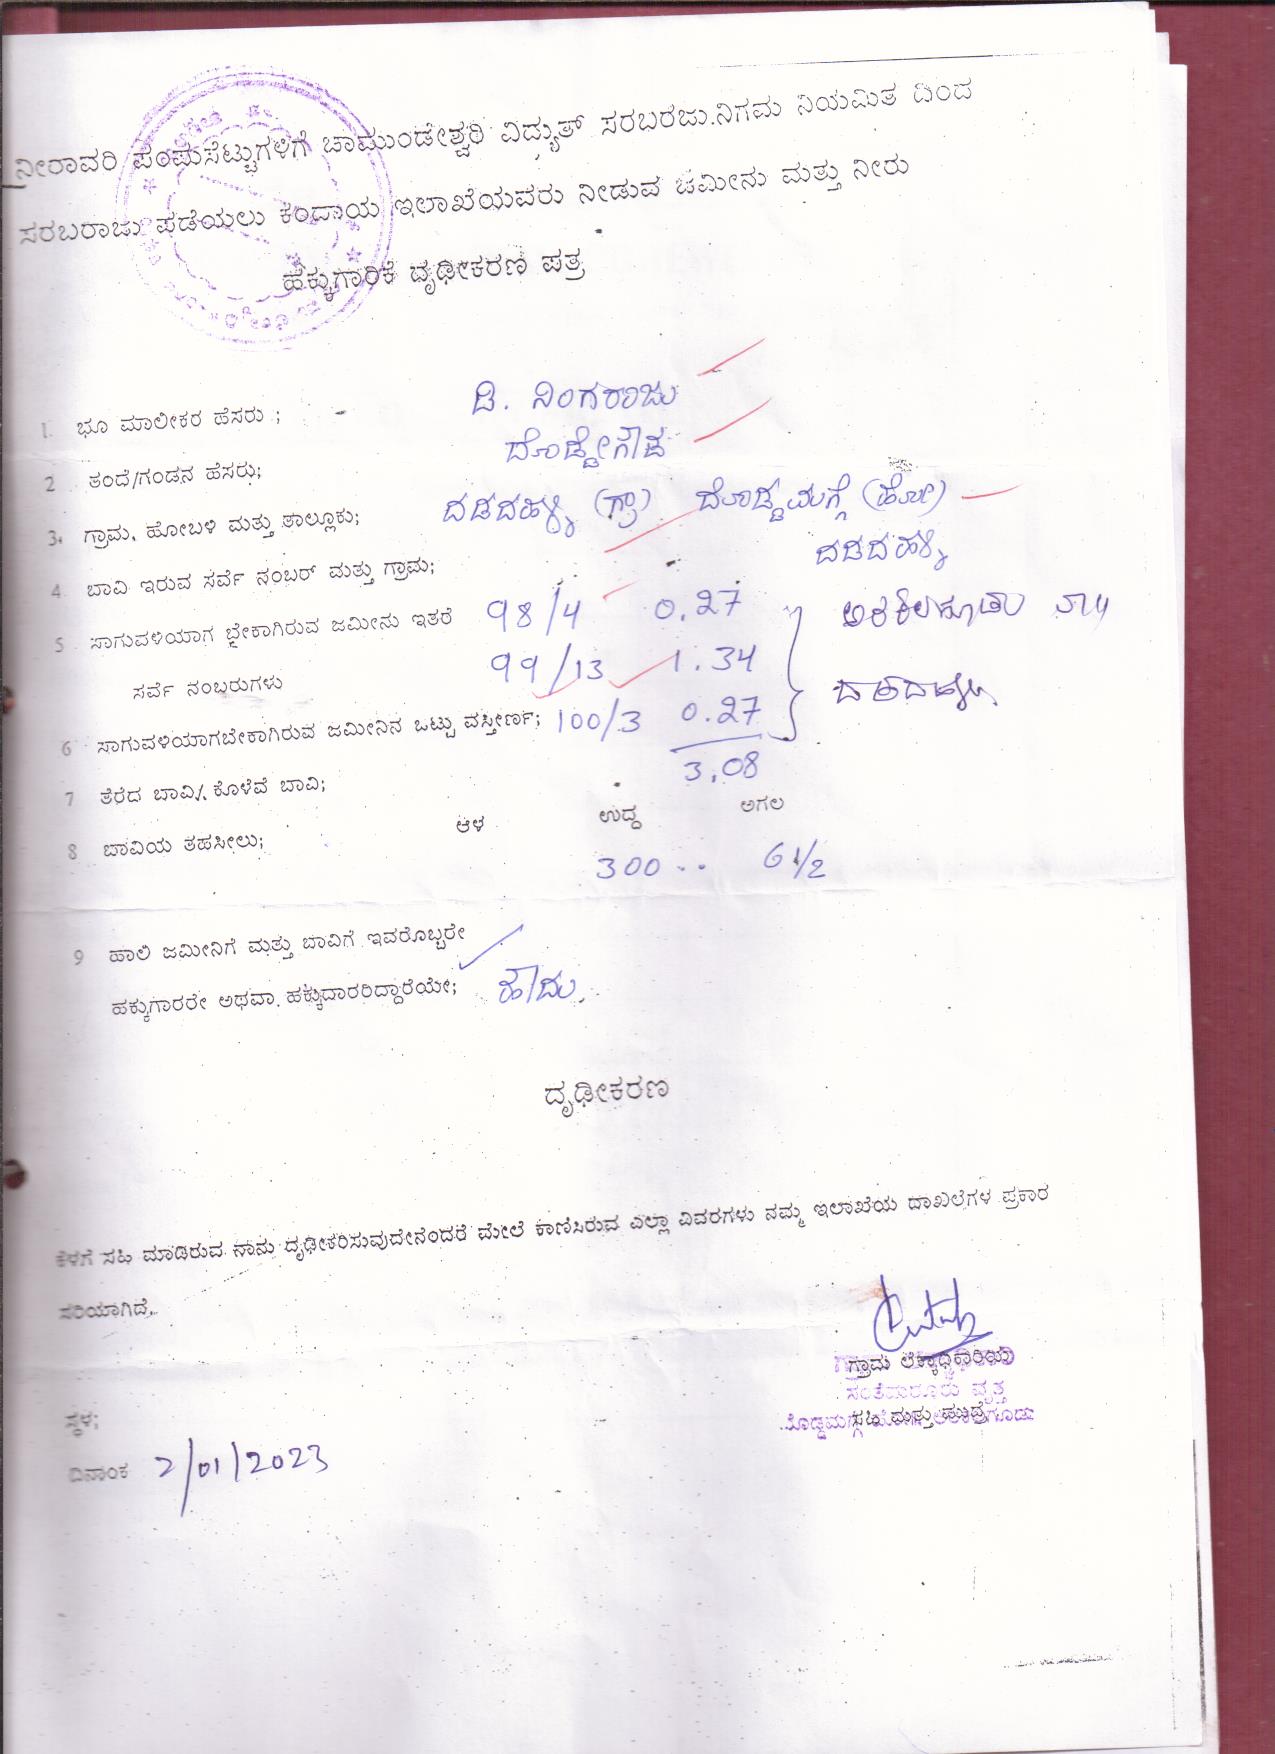 ನೀರಾವರಿ ಪಂಪುಸೆಟ್ಟುಗಳಿಗೆ ಚಾಮುಂಡೇಶ್ವರಿ ವಿದ್ಯುತ್ ಸರಬರಜು.ನಿಗಮ ನಿಯಮಿತ ದಿಂದ
ಸರಬರಾಜು ಪಡೆಯಲು ಕಂದಾಯ ಇಲಾಖೆಯವರು ನೀಡುವ ಜಮೀನು ಮತ್ತು ನೀರು
ಹಕ್ಕುಗಾರಿಕೆ ದೃಢೀಕರಣ ಪತ್ರ
1. ಭೂ ಮಾಲೀಕರ ಹೆಸರು ; - ಡಿ. ನಿಂಗರಾಜು
2 ತಂದೆ/ಗಂಡನ ಹೆಸರು; ದೊಡ್ಡೇಗೌಡ
3. ಗ್ರಾಮ, ಹೋಬಳಿ ಮತ್ತು ತಾಲ್ಲೂಕು; ದಡದಹಳ್ಳಿ (ಗ್ರಾ) ದೊಡ್ಡಮಗ್ಗೆ (ಹೋ)
4 ಬಾವಿ ಇರುವ ಸರ್ವೆ ನಂಬರ್ ಮತ್ತು ಗ್ರಾಮ; ದಡದಹಳ್ಳಿ
5 ಸಾಗುವಳಿಯಾಗ ಬೇಕಾಗಿರುವ ಜಮೀನು ಇತರೆ 98/4 0.27 ಅರಕಲಗೂಡು
ಸರ್ವೆ ನಂಬರುಗಳು 99/13 1.34 ದಡದಹಳ್ಳಿ
6 ಸಾಗುವಳಿಯಾಗಬೇಕಾಗಿರುವ ಜಮೀನಿನ ಒಟ್ಟು ವಸ್ತೀರ್ಣ; 100/3 0.27
3.08
7 ತೆರೆದ ಬಾವಿ/. ಕೊಳೆವೆ ಬಾವಿ;
8 ಬಾವಿಯ ತಹಸೀಲು; ಆಳ ಉದ್ದ ಅಗಲ
300 .. 6 1/2
9 ಹಾಲಿ ಜಮೀನಿಗೆ ಮತ್ತು ಬಾವಿಗೆ ಇವರೊಬ್ಬರೇ
ಹಕ್ಕುಗಾರರೇ ಅಥವಾ. ಹಕ್ಕುದಾರರಿದ್ದಾರೆಯೇ; ಹೌದು
ದೃಢೀಕರಣ
ಕೆಳಗೆ ಸಹಿ ಮಾಡಿರುವ ನಾನು ದೃಢೀಕರಿಸುವುದೇನೆಂದರೆ ಮೇಲೆ ಕಾಣಿಸಿರುವ ಎಲ್ಲಾ ವಿವರಗಳು ನಮ್ಮ ಇಲಾಖೆಯ ದಾಖಲೆಗಳ ಪ್ರಕಾರ
ಸರಿಯಾಗಿದೆ.
ಗ್ರಾಮ ಲೆಕ್ಕಾಧಿಕಾರಿಯ
ಸಂತೆಮರೂರು ವೃತ್ತ
ಸಹಿ ಮತ್ತು ಮುದ್ರೆ
ಸ್ಥಳ;
ದಿನಾಂಕ 2/01/2023